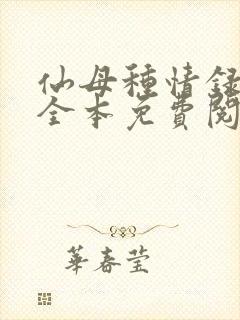 仙母種情録
全本免費閱
華春莹